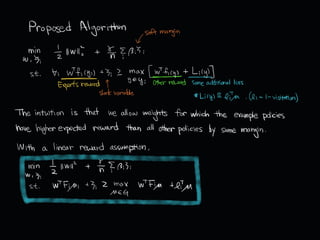 Proposed Algorithm
soft margin
min w, ξi 1/2 ||w||² + γ/n Σ βi ξi
s.t. ∀i wᵀfi(yi) + ξi ≥ max y∈yi [wᵀfi(y) + Li(y)]
Experts reward Other reward some additional loss.
slack variable
The intuition is that we allow weights for which the example policies
have higher expected reward than all other policies by some margin.
With a linear reward assumption,
min w, ξi 1/2 ||w||² + γ/n Σ βi ξi
s.t. wᵀFiμi + ξi ≥ max μ∈G wᵀFiμ + ℓiᵀμ